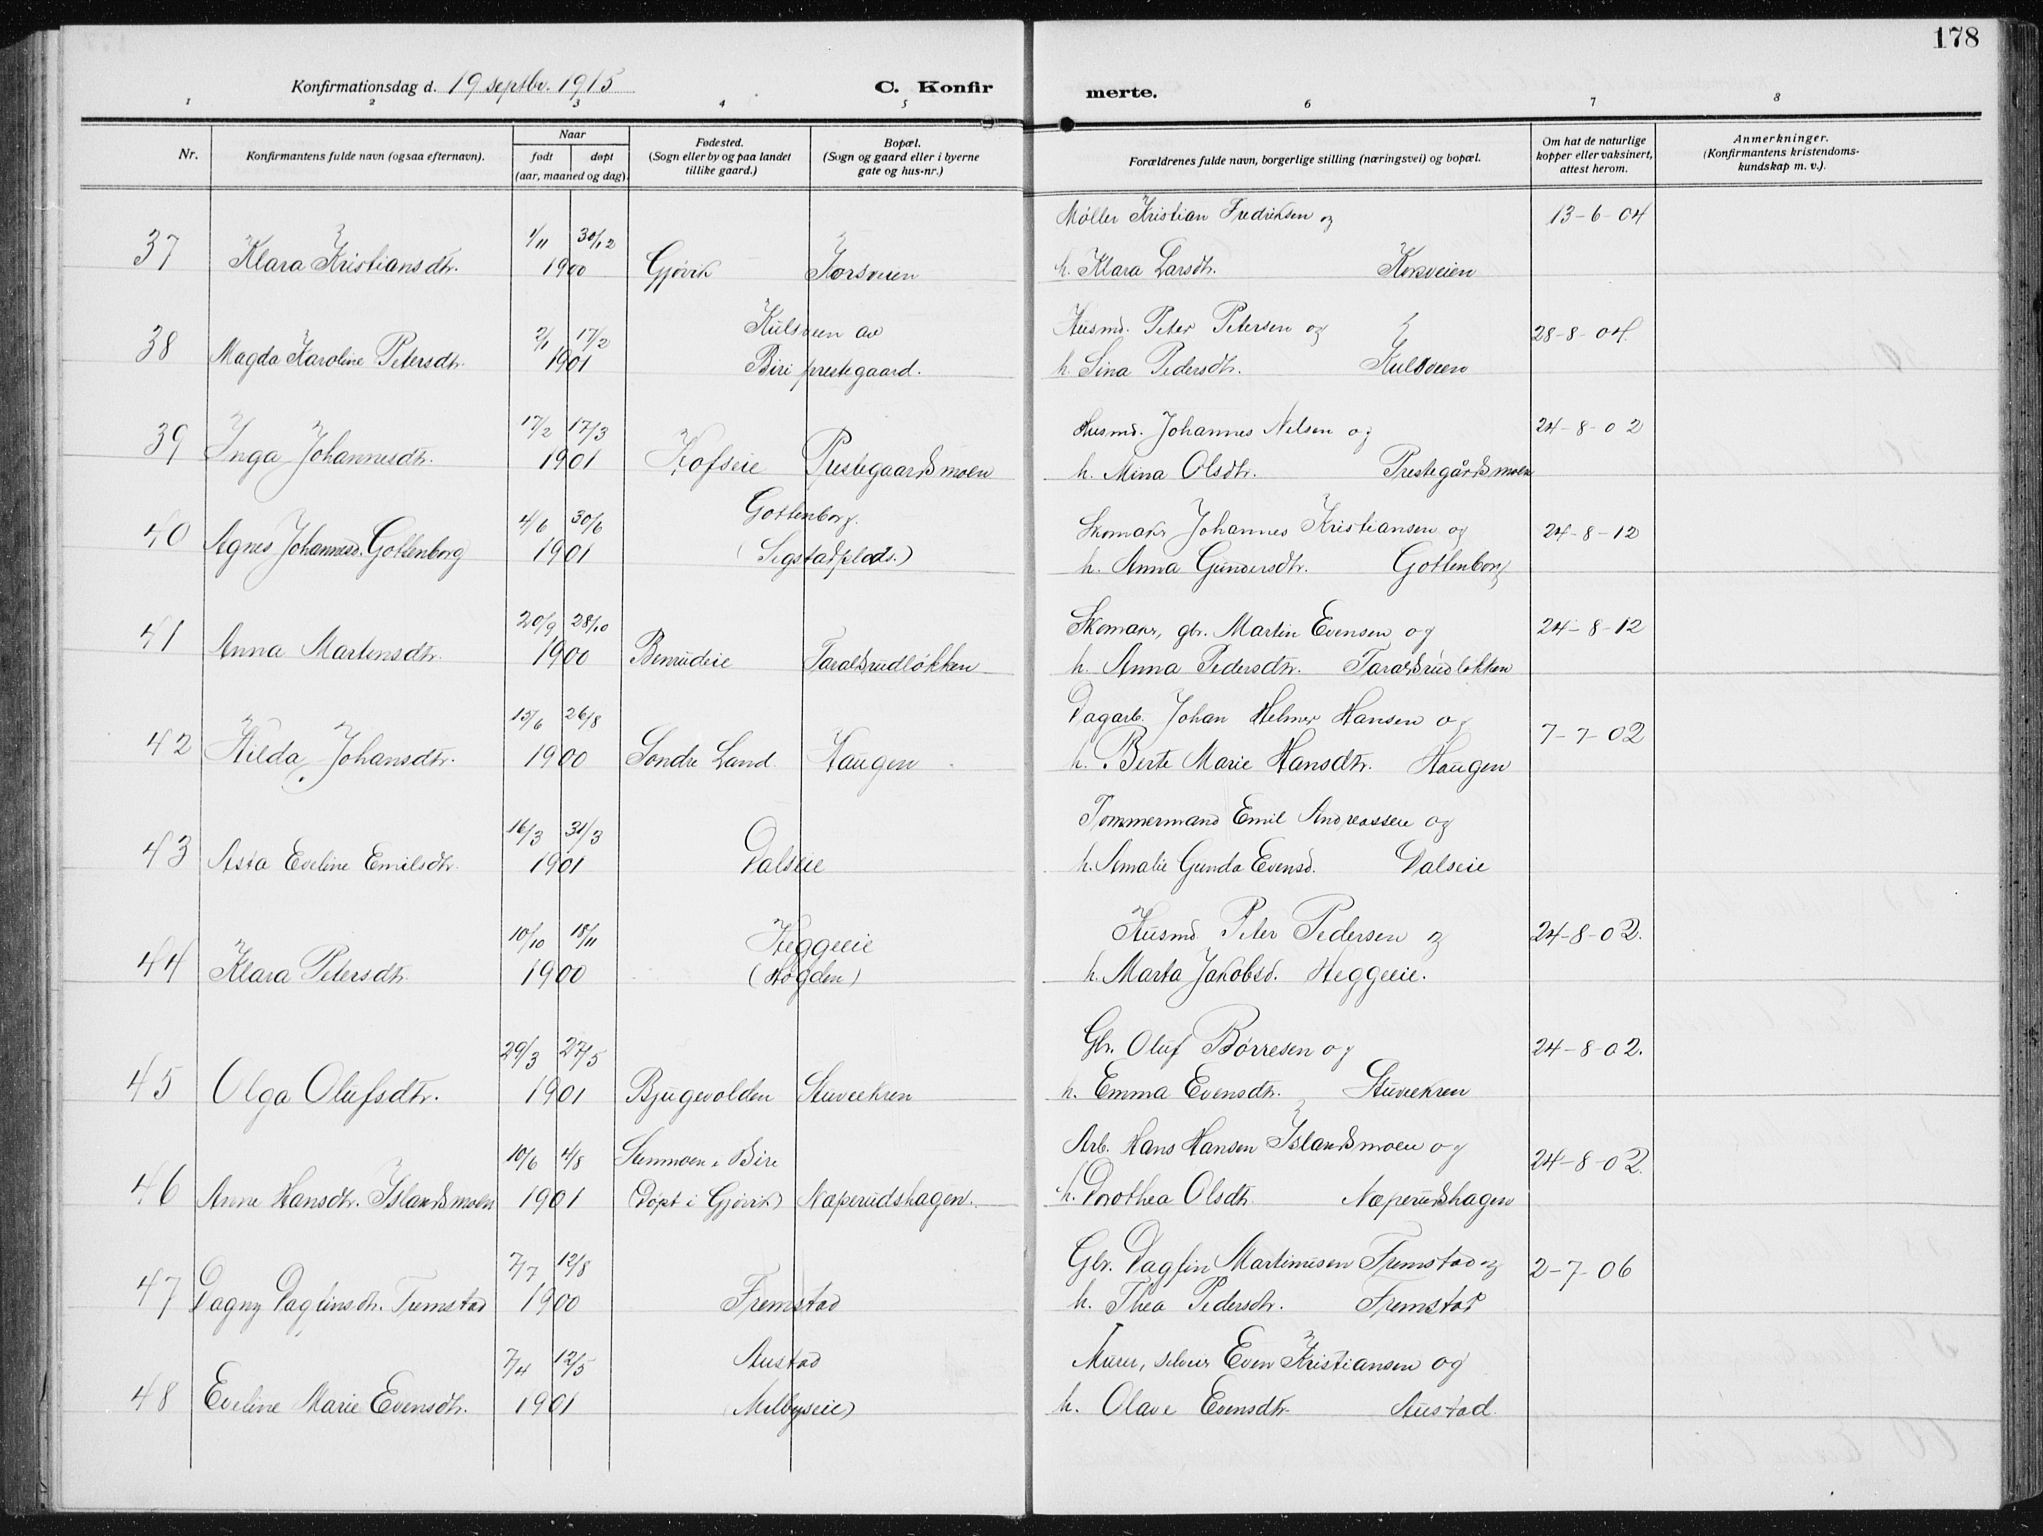 178
Konfirmationsdag d. 19 septbr. 1915
C. Konfirmerte.
1 2 3 4 5 6 7 8
Nr.
Konfirmantens fulde navn (ogsaa efternavn).
Naar
født døpt
(aar, maaned og dag).
Fødested.
(Sogn eller by og paa landet
tillike gaard.)
Bopæl.
(Sogn og gaard eller i byerne
gate og hus-nr.)
Forældrenes fulde navn, borgerlige stilling (næringsvei) og bopæl.
Om hat de naturlige
kopper eller vaksinert,
attest herom.
Anmerkninger.
(Konfirmantens kristendoms-
kundskap m. v.).
Møller Kristian Fredriksen og 13-6-04
37 1/11 30/12
Klara Kristiansdtr. 1900 Gjøvik Korsveien h. Klara Larsdtr. Korsveien
38 2/1 17/2 Kulsveen av Husmd. Peter Petersen og 28-8-04.
Magda Karoline Petersdtr. 1901 Biri prestegaard. h. Lina Pedersdtr. Kulsveen
39 17/2 17/3 Husmd. Johannes Nilsen og 24-8-02
Inga Johannesdtr. 1901 Hofseie Prestegaardsmoen h. Mina Olsdtr. Prestegårdsmoen
40 4/6 30/6 Gottenborg. Skomaker Johannes Kristiansen og 24-8-12
Agnes Johannesd. Gottenborg 1901 (Sigstadplads.) h. Anna Gundersdtr. Gottenborg
41 20/9 28/10 Skomaker, gbr. Martin Evensen og 24-8-12
Anna Martinsdtr. 1900 Benrudeie Taralsrudløkken h. Anna Pedersdtr. Taralsrudløkken
42 15/6 26/8 Dagarb. Johan Helmer Hansen og 7-7-02
Hilda Johansdtr. 1900 Søndre Land Haugen h. Berte Marie Hansdtr. Haugen
43 16/3 31/3 Tømmermand Emil Andreassen og
Asta Eveline Emilsdtr. 1901 Dalseie h. Amalie Gunda Evensd. Dalseie
44 10/10 18/11 Heggeeie Husmd. Peter Pedersen og 24-8-02.
Klara Petersdtr. 1900 (Høgden) h. Marta Jakobsd. Heggeeie.
45 29/3 27/5 Gbr. Oluf Børresen og 24-8-02.
Olga Olufsdtr. 1901 Bjugevolden Stuveekren h. Emma Evensdtr. Stuveekren
46 10/6 4/8 Biri Arb. Hans Hansen Islandsmoen og 24-8-02.
Anna Hansdtr. Islandsmoen 1901 (døpt i Gjøvik) Næperudshagen. h. Dorothea Olsdtr. Næperudshagen
47 7/7 12/8 Gbr. Dagfin Martinusen Fremstad og 2-7-06
Dagny Dagfinsdtr. Fremstad 1900 Fremstad h. Thea Pedersdtr. Fremstad
48 7/4 12/5 Austad Murer, selveier Even Kristiansen og
Eveline Marie Evensdtr. 1901 (Melbyseie) h. Olave Evensdtr. Austad.